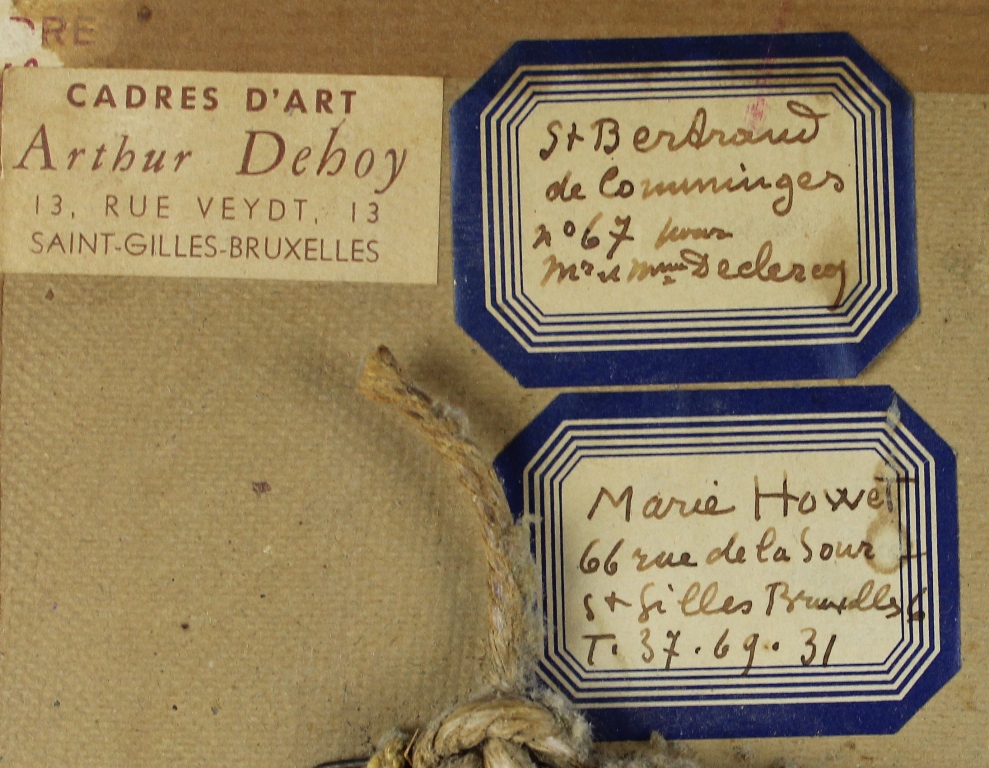 DRE
CADRES D'ART
Arthur Dehoy
13, RUE VEYDT, 13
SAINT-GILLES-BRUXELLES
St Bertrand
de Comminges
n° 67 pour
Mr et Mme Declercq
Marie Howet
66 rue de la Source
St Gilles Bruxelles 6
T. 37.69.31